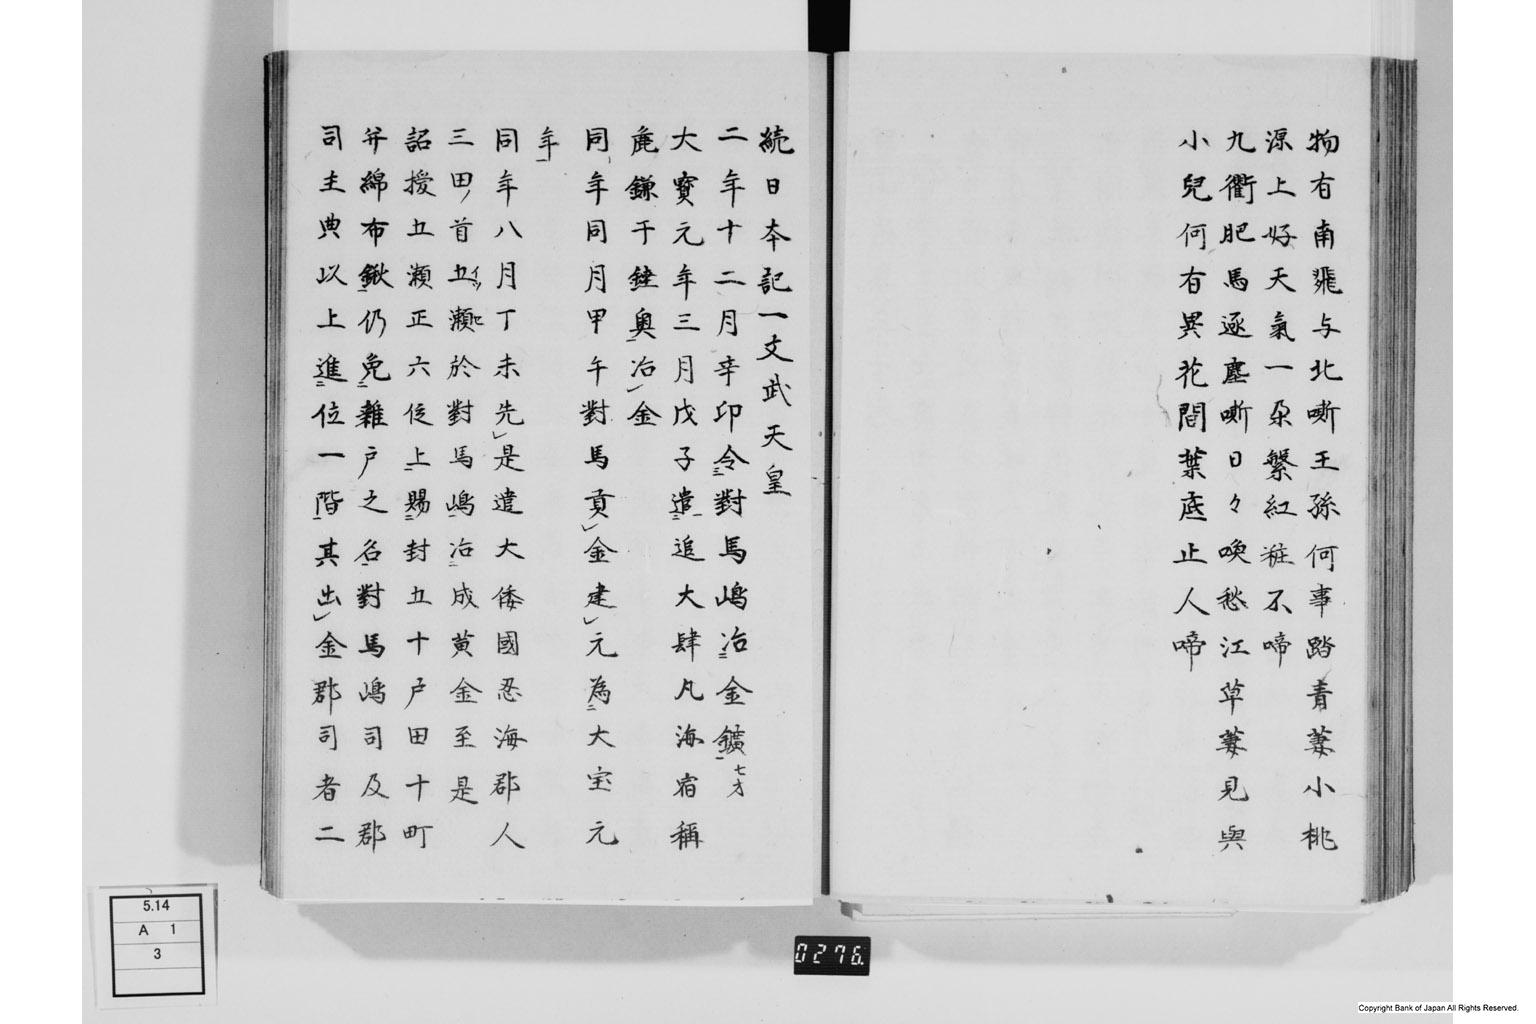 物有南飛与北嘶王孫何事踏青萋小桃
源上好天氣一朶繁紅粧不啼
九衢肥馬逐塵嘶日々喚愁江草萋見與
小兒何有異花間葉底止人啼
続日本記一文武天皇
二年十二月辛卯令對馬嶋冶金鑛七才
大寳元年三月戊子遣追大肆凡海宿稱
麁鎌于錗奥冶金
同年同月甲午對馬貢金建元為大宝元
年
同年八月丁未先是遣大倭國忍海郡人
三田首五瀬於對馬嶋冶成黄金至是
詔授五瀬正六位上賜封五十戸田十町
并綿布鍬仍免雜戸之名對馬嶋司及郡
司主典以上進位一階其出金郡司者二
5.14
A 1
3
0276
Copyright Bank of Japan All Rights Reserved.